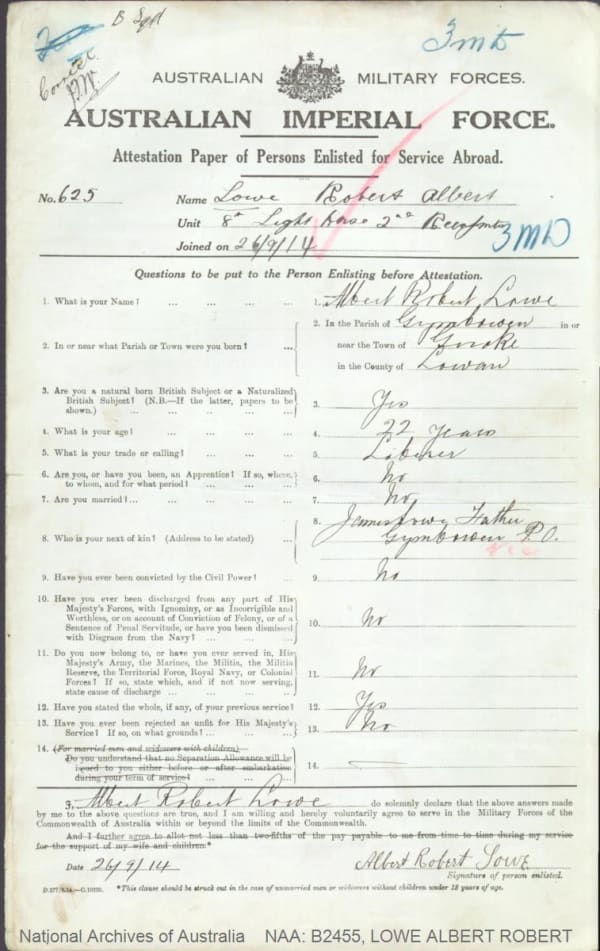 B Sqd
3MD
AUSTRALIAN MILITARY FORCES.
AUSTRALIAN IMPERIAL FORCE.
Attestation Paper of Persons Enlisted for Service Abroad.
No. 625 Name Lowe Robert Albert
Unit 8th Light Horse 2nd
3MD
Joined on 26/9/14
Questions to be put to the Person Enlisting before Attestation.
1. What is your Name? ... ... ... ... 1. Albert Robert Lowe
2. In or near what Parish or Town were you born? ... 2. In the Parish of Gymbowen in or
near the Town of Goroke
in the County of Lowan
3. Are you a natural born British Subject or a Naturalized
British Subject? (N.B.—If the latter, papers to be
shown.) ... ... ... ... 3. Yes
4. What is your age? ... ... ... ... 4. 22 years
5. What is your trade or calling? ... ... ... 5. Laborer
6. Are you, or have you been, an Apprentice? If so, where,
to whom, and for what period? ... ... ... 6. No
7. Are you married? ... ... ... ... 7. No
8. Who is your next of kin? (Address to be stated) ... 8. James Lowe Father
Gymbowen P.O.
Vic
9. Have you ever been convicted by the Civil Power? ... 9. No
10. Have you ever been discharged from any part of His
Majesty's Forces, with Ignominy, or as Incorrigible and
Worthless, or on account of Conviction of Felony, or of a
Sentence of Penal Servitude, or have you been dismissed
with Disgrace from the Navy? ... ... ... 10. No
11. Do you now belong to, or have you ever served in, His
Majesty's Army, the Marines, the Militia, the Militia
Reserve, the Territorial Force, Royal Navy, or Colonial
Forces? If so, state which, and if not now serving,
state cause of discharge ... ... ... ... 11. No
12. Have you stated the whole, if any, of your previous service? 12. Yes
13. Have you ever been rejected as unfit for His Majesty's
Service? If so, on what grounds? ... ... ... 13. No
14. (For married men and widowers with children)
Do you understand that no Separation Allowance will be
issued to you either before or after embarkation
during your term of service? ... ... ... 14.
I, Albert Robert Lowe do solemnly declare that the above answers made
by me to the above questions are true, and I am willing and hereby voluntarily agree to serve in the Military Forces of the
Commonwealth of Australia within or beyond the limits of the Commonwealth.
And I further agree to allot not less than two-fifths of the pay payable to me from time to time during my service
for the support of my wife and children.*
Date 26/9/14 Albert Robert Lowe
Signature of person enlisted.
*This clause should be struck out in the case of unmarried men or widowers without children under 18 years of age.
National Archives of Australia NAA: B2455, LOWE ALBERT ROBERT